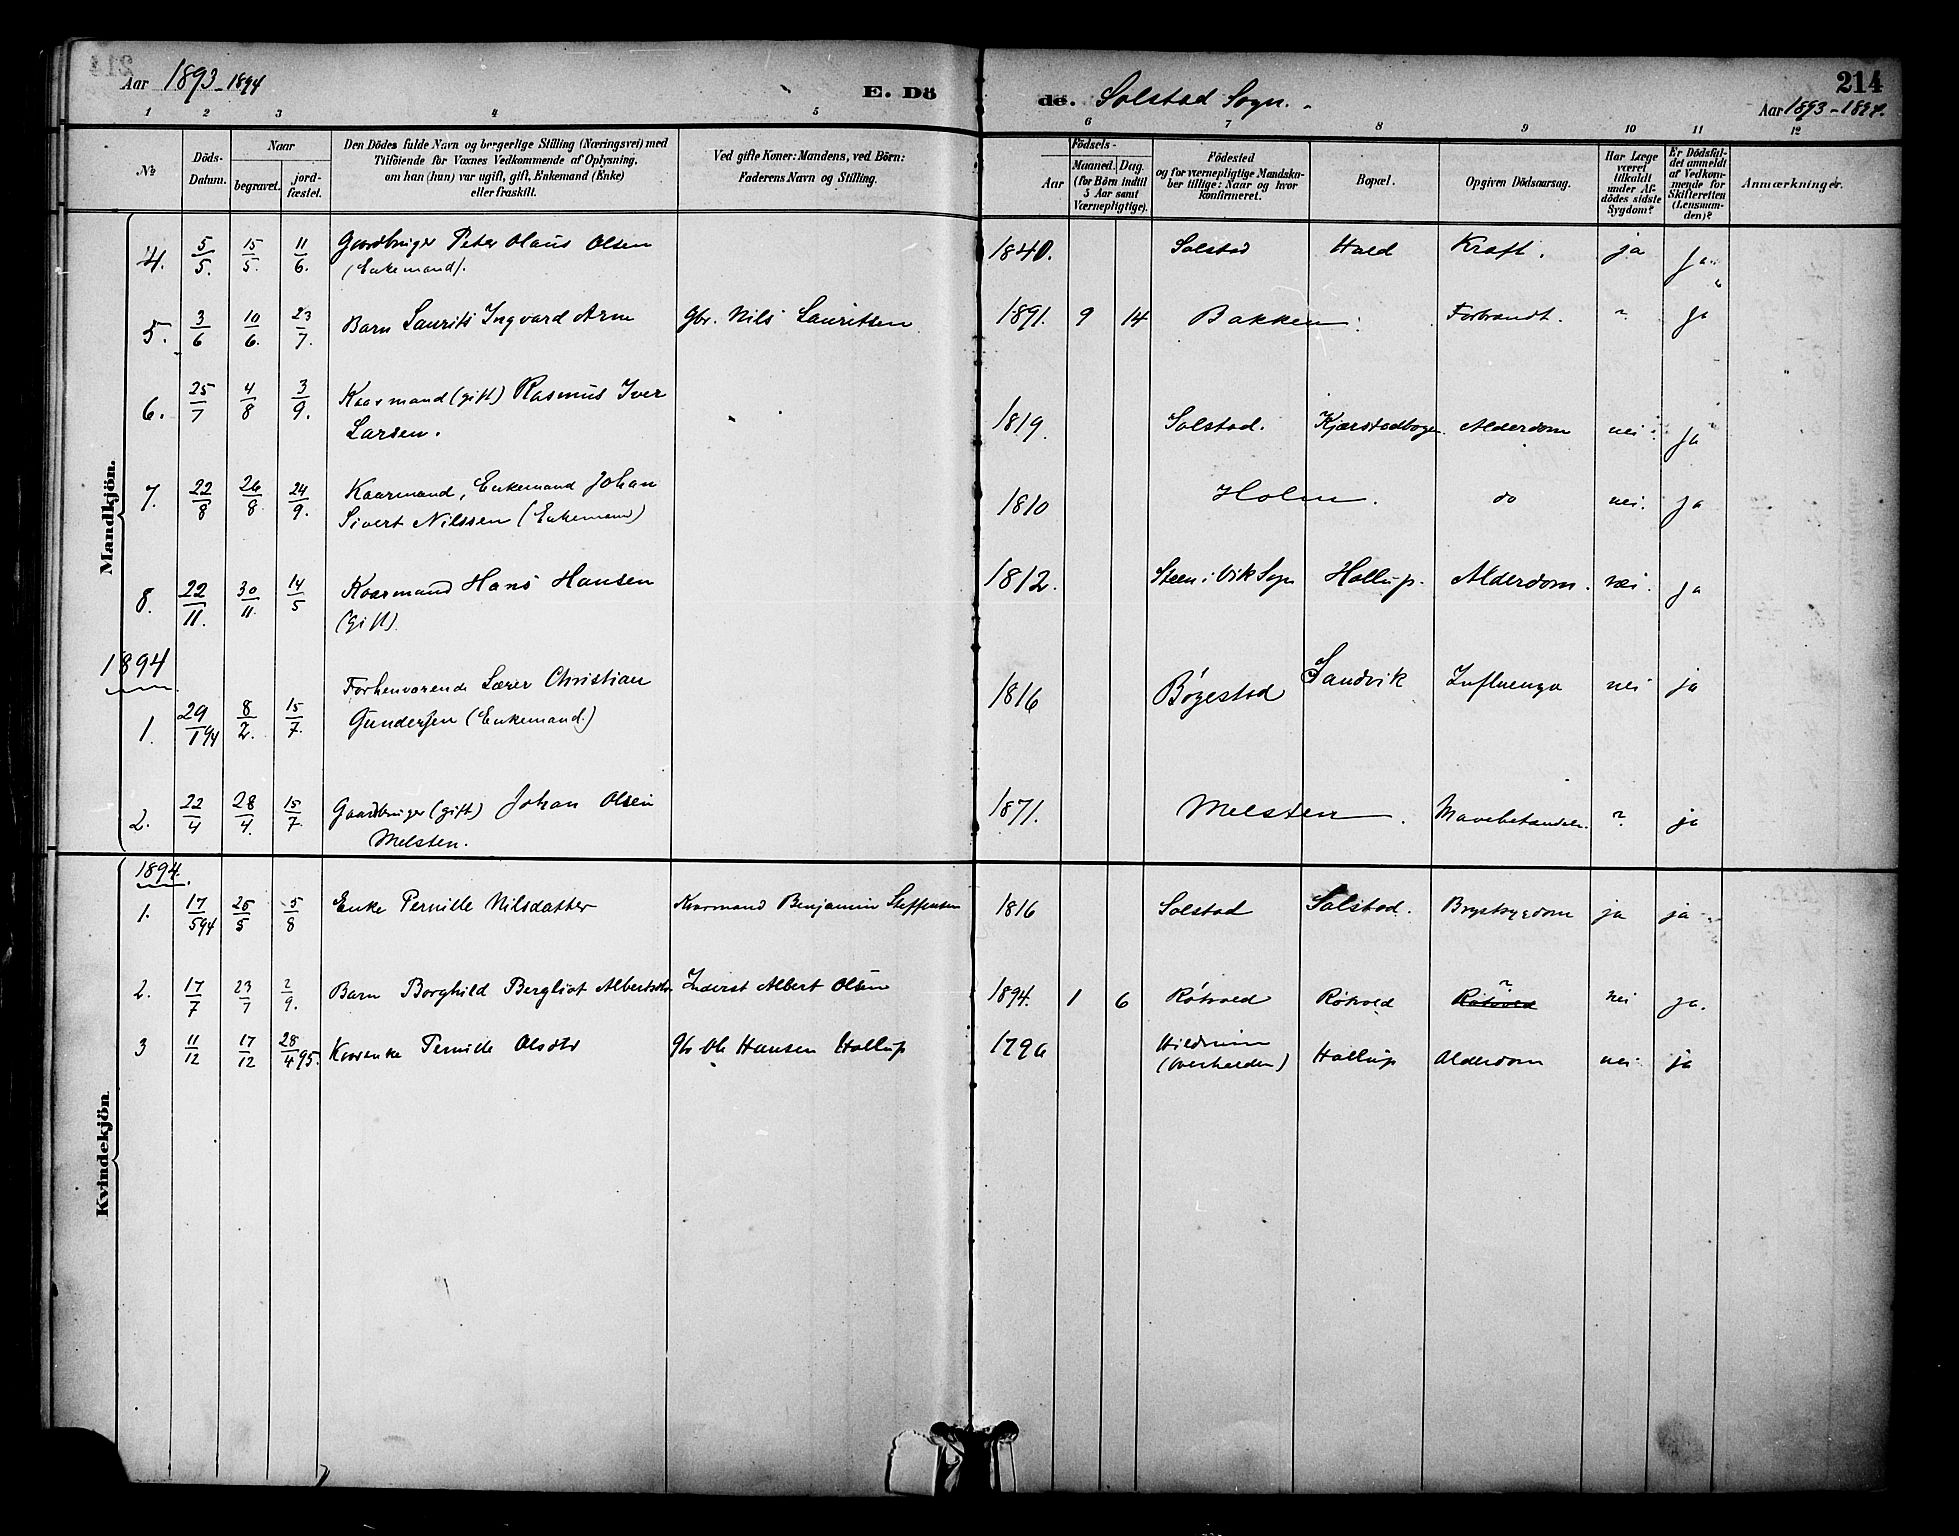 Aar 1893-1894
E. Dö
de. Solstad Sogn.
214
Aar 1893-1894.
1 2 3 4 5 6 7 8 9 10 11 12
No
Döds-Datum.
Naar
begravet.
jord-fæstet.
Den Dödes fulde Navn og borgerlige Stilling (Næringsvei) med
Tilföiende for Voxnes Vedkommende af Oplysning,
om han (hun) var ugift, gift, Enkemand (Enke)
eller fraskilt.
Ved gifte Koner: Mandens, ved Börn:
Faderens Navn og Stilling.
Födsels-
Aar
Maaned.
Dag.
(for Börn indtil
5 Aar samt
Værnepligtige).
Födested
og for værnepligtige Mandska-
ber tillige: Naar og hvor
konfirmeret.
Bopæl.
Opgiven Dödsaarsag.
Har Læge
været
tilkaldt
under Af-
dödes sidste
Sygdom?
Er Dödsfal-
det anmeldt
af Vedkom-
mende for
Skifteretten
(Lensman-
den)?
Anmærkninger.
Mandkjön.
4. 5/5. 15/5. 11/6. Gaardbruger Peter Olaus Olsen 1840. Solstad Hald Kræft. ja ja
(Enkemand).
5. 3/6 10/6. 23/7. Barn Laurits Ingvard Arm Gbr. Nils Lauritsen 1891. 9 14 Bakken. Forbrandt. ? ja
6. 25/7 4/8 3/9. Kaarmand (gift) Rasmus Iver 1819. Solstad. Kjærstadbogen Alderdom nei. ja
Larsen.
7. 22/8 26/8. 24/9. Kaarmand, Enkemand Johan 1810 Holm. do nei. ja
Sivert Nilssen (Enkemand)
8. 22/11. 30/11. 14/5 Kaarmand Hans Hansen 1812. Steen i Vik Sogn Hallup. Alderdom. nei. ja
(gift).
1894
1. 29/1 94 8/2. 15/7. Forhenværende Lærer Christian 1816 Bøgestad Sandvik Influenza nei ja
Gundersen (Enkemand.)
2. 22/4 28/4. 15/7. Gaardbruger (gift) Johan Olsen 1871. Melsten. Mavebetændelse. ? ja
Melsten.
Kvindekjön.
1894.
1. 17/5 94 25/5 5/8 Enke Pernille Nilsdatter Kaarmand Benjamin Steffensen 1816 Solstad Solstad. Brystsygdom ja ja
2. 17/7 23/7 2/9. Barn Borghild Bergliot Albertsdtr Inderst Albert Olsen 1894. 1 6 Røtvold Røtvold Røtvold ? nei ja.
3 11/12 17/12 28/4 95. Kaarenke Pernille Olsdtr Gbr Ole Hansen Hallup 1796 Hildrum Hallup Alderdom nei ja
(Overhalden)